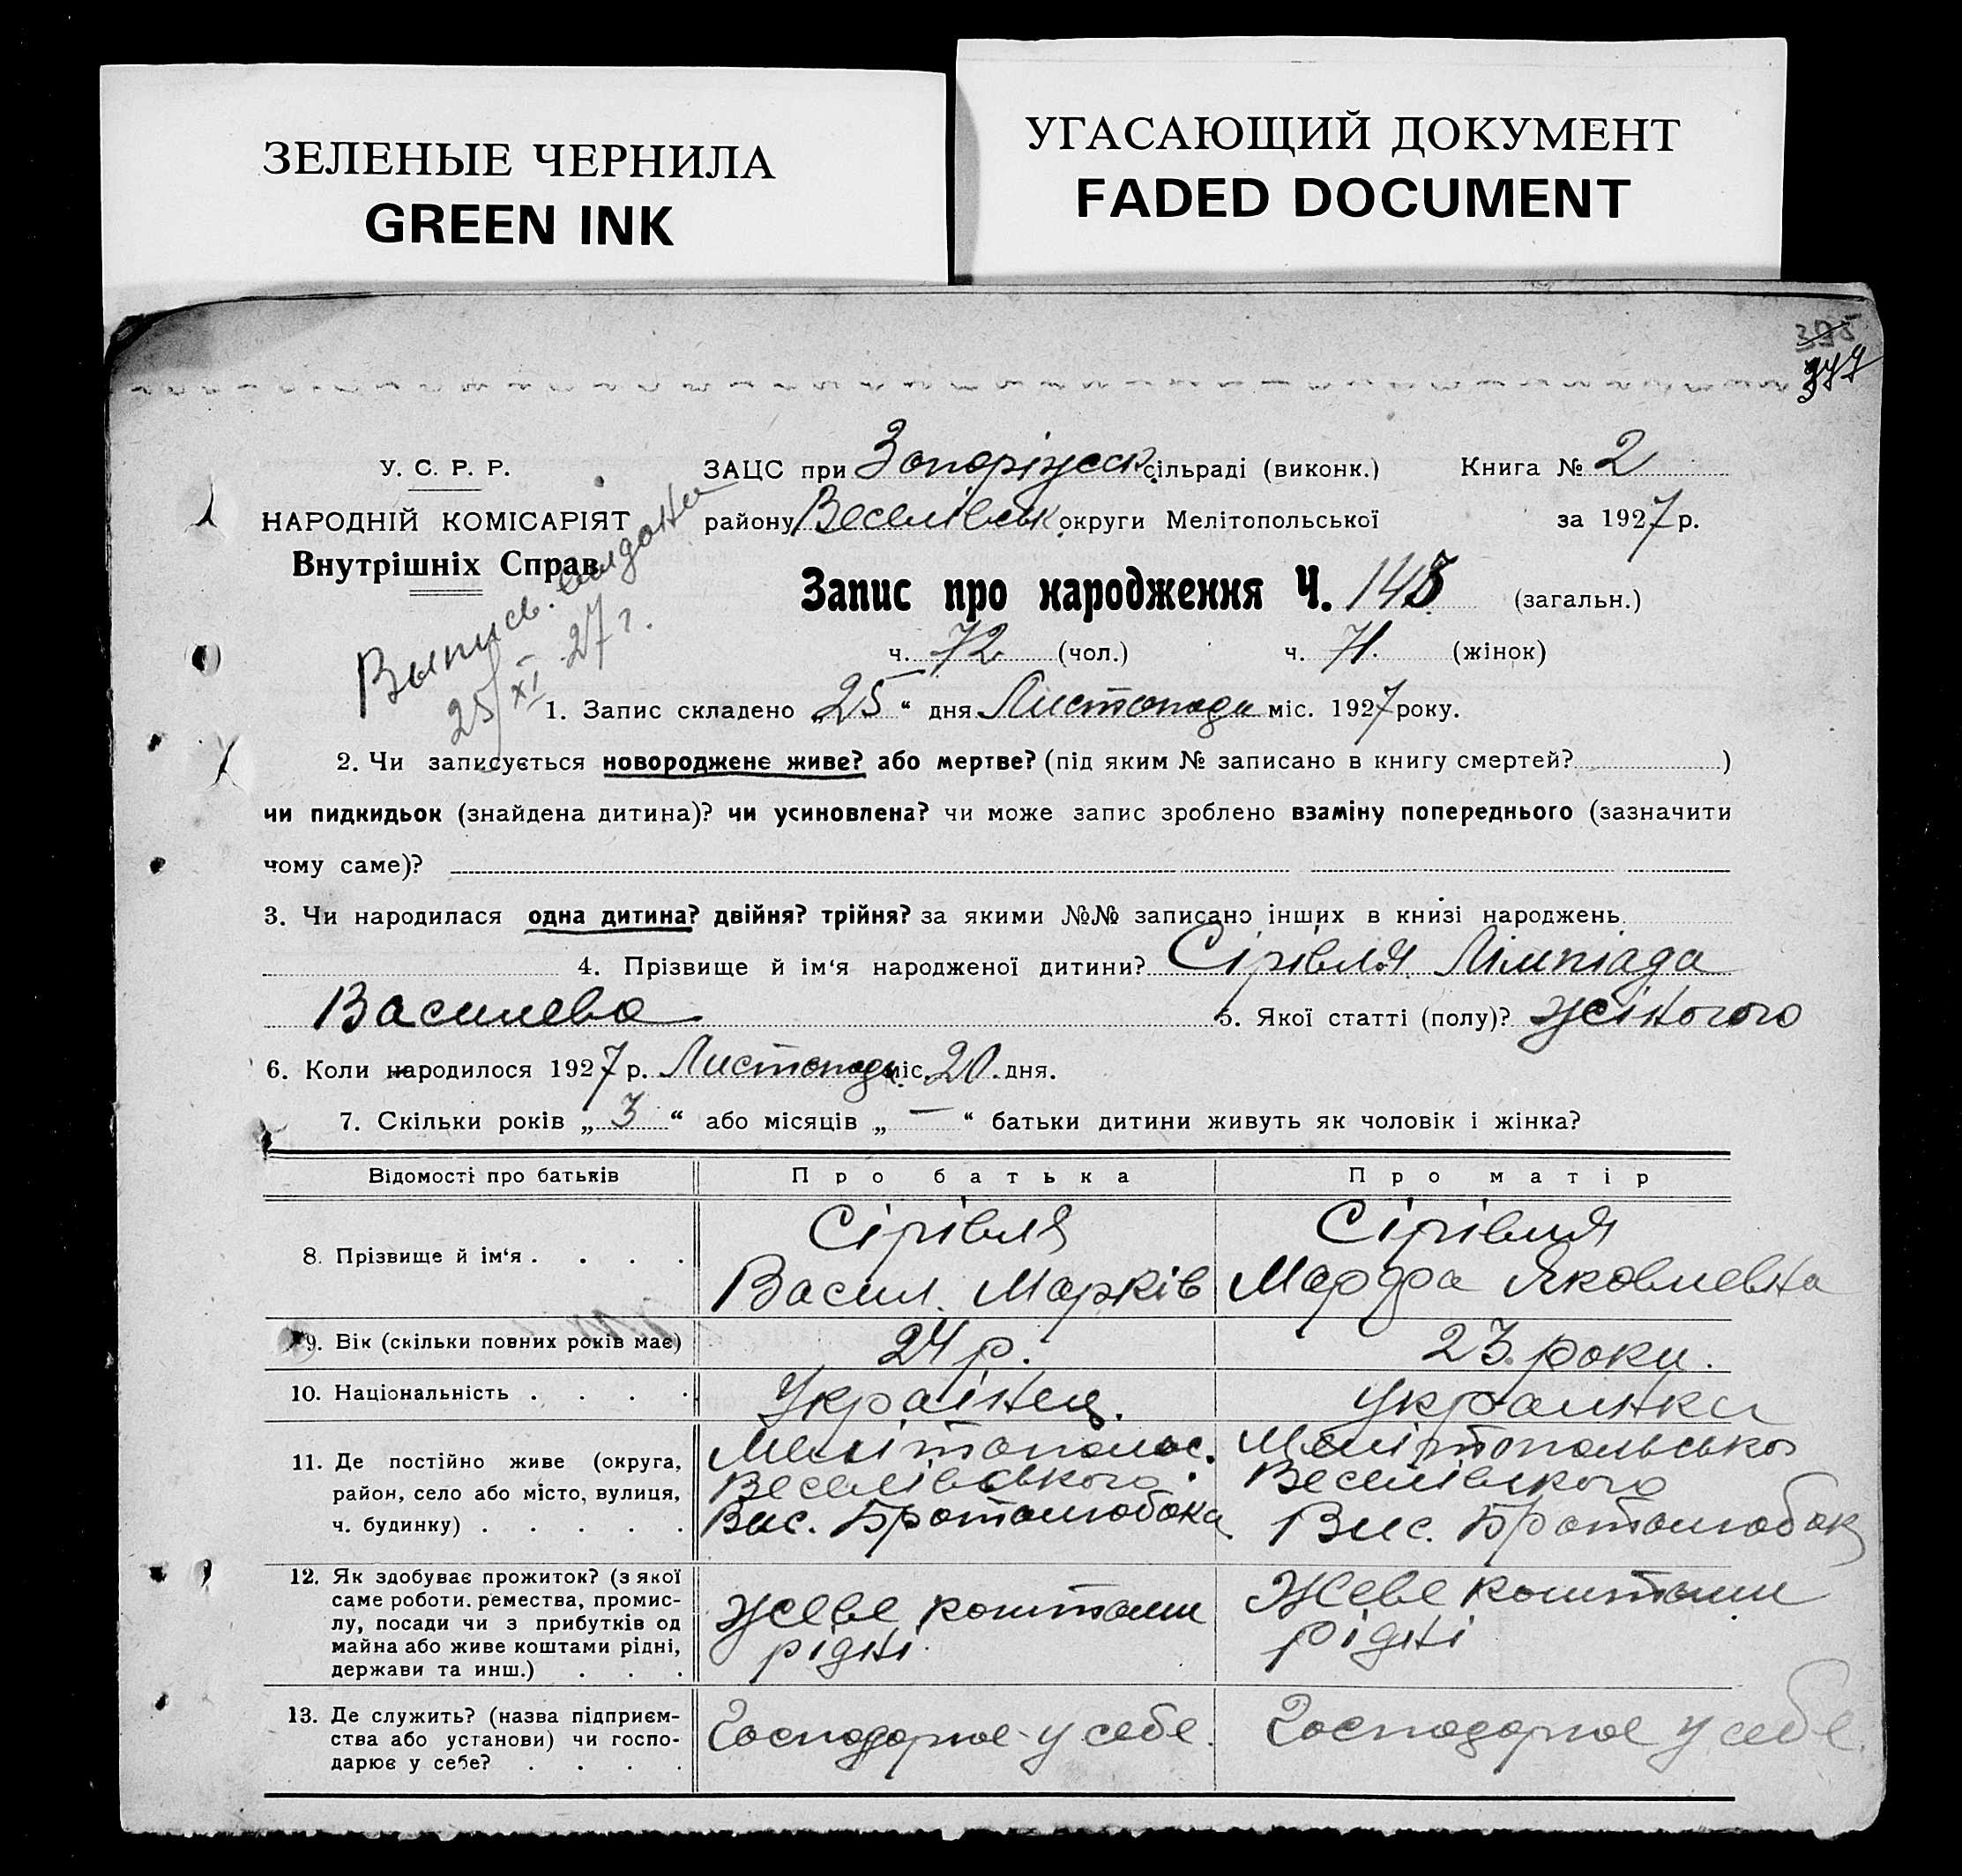 ЗЕЛЕНЫЕ ЧЕРНИЛА
GREEN INK
УГАСАЮЩИЙ ДОКУМЕНТ
FADED DOCUMENT
У. С. Р. Р.
НАРОДНІЙ КОМІСАРІЯТ
Внутрішніх Справ
25/XI 27 г.
ЗАЦС при Запоріжск. сільраді (виконк.) Книга № 2
району Веселівськ. округи Мелітопольської за 1927 р.
Запис про народження Ч. 145 (загальн.)
ч. 72 (чол.) ч. 71. (жінок)
1. Запис складено „25“ дня Листопада міс. 1927 року.
2. Чи записується новороджене живе? або мертве? (під яким № записано в книгу смертей? )
чи пидкидьок (знайдена дитина)? чи усиновлена? чи може запис зроблено взаміну попереднього (зазначити
чому саме)?
3. Чи народилася одна дитина? двійня? трійня? за якими №№ записано інших в книзі народжень
4. Прізвище й ім‘я народженої дитини? Сірівля Лімпіада
Василева 5. Якої статті (полу)? жіночого
6. Коли народилося 1927 р. Листопада міс. 20. дня.
7. Скільки років „3“ або місяців „—“ батьки дитини живуть як чоловік і жінка?
Відомості про батьків Про батька Про матір
8. Прізвище й ім‘я . . . . Сірівля Сірівля
Васил. Марків Марфа Яковлевна
9. Вік (скільки повних років має) 24 р. 23. роки.
10. Національність . . . . Українец. украинка
11. Де постійно живе (округа, Мелітопольс. Мелітопольсько
район, село або місто, вулиця, Веселівського Веселівского
ч. будинку) . . . . . Вис. Братолюбовка Вис. Братолюбок
12. Як здобуває прожиток? (з якої
саме роботи. ремества, промис- Жеве коштами Жеве коштами
лу, посади чи з прибутків од рідні рідні
майна або живе коштами рідні,
держави та инш.) . . .
13. Де служить? (назва підприєм-
ства або установи) чи госпо- Господарює у себе. Господарює у себе.
дарює у себе? . . . .